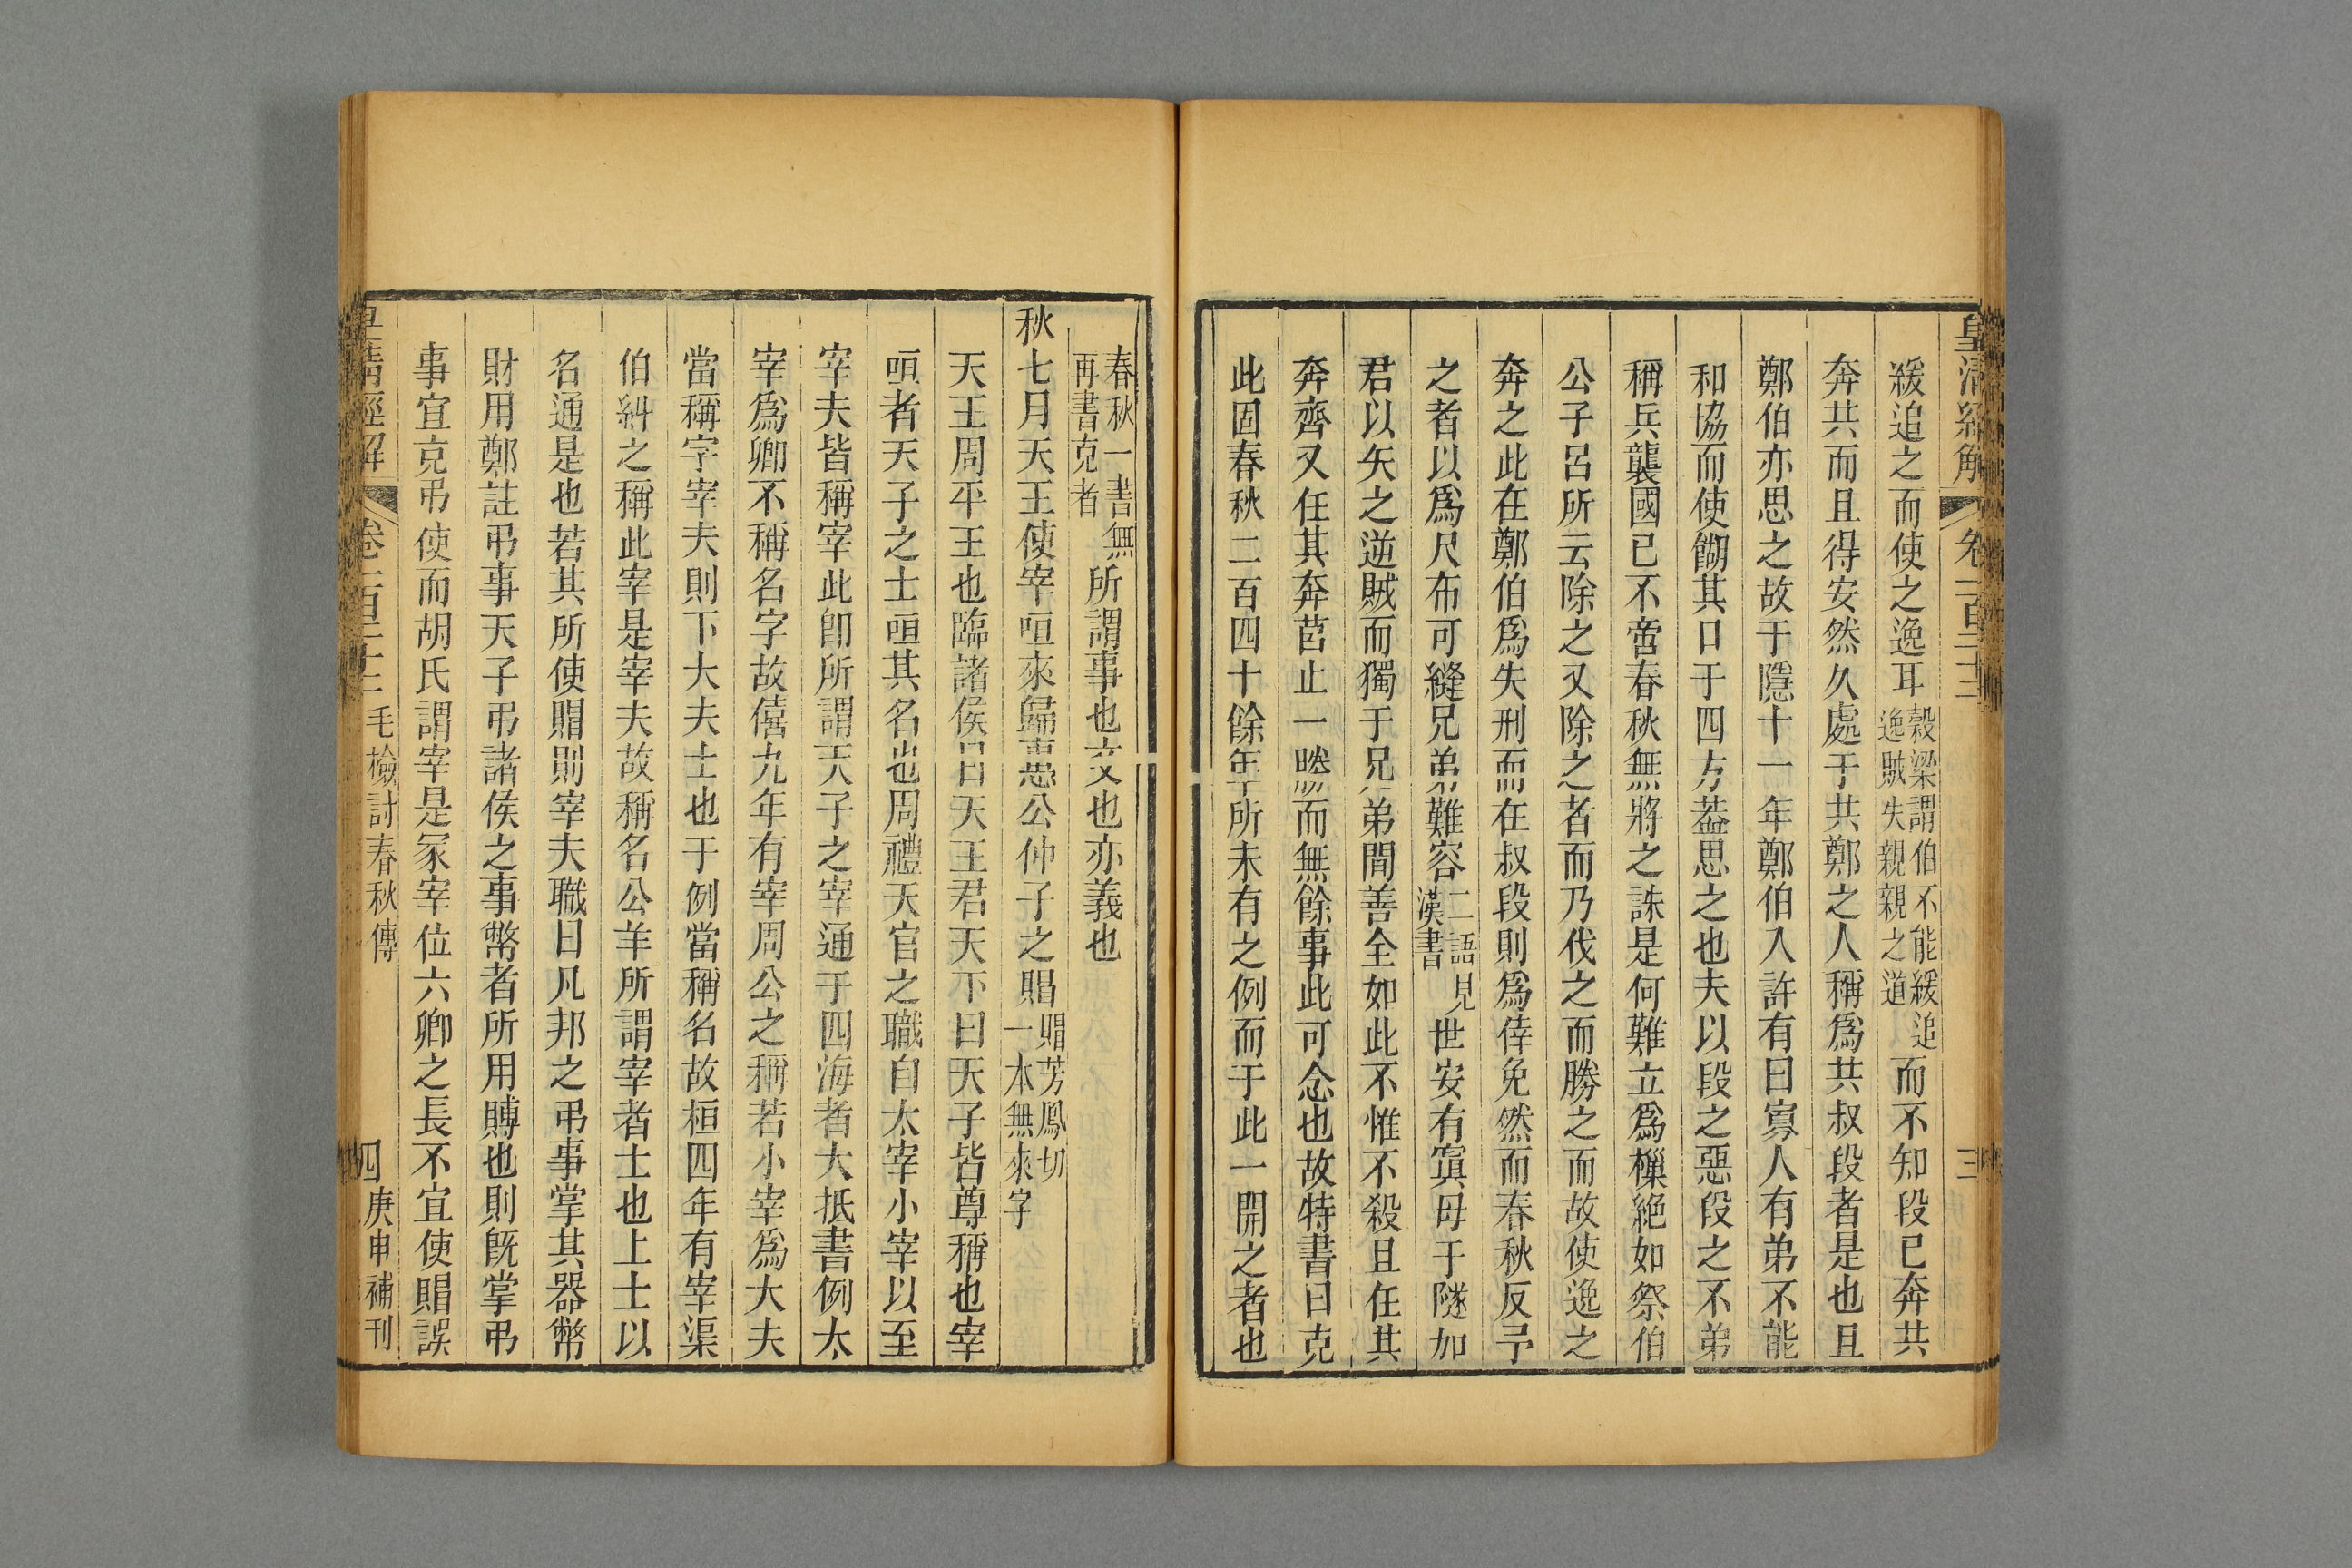 皇清經解 卷一百二十二 三
緩追之而使之逸耳穀梁謂伯不能緩追逸賊失親親之道而不知段已奔共
奔共而且得安然久處于共鄭之人稱爲共叔段者是也且
鄭伯亦思之故于隱十一年鄭伯入許有曰寡人有弟不能
和協而使餬其口于四方葢思之也夫以段之惡段之不弟
稱兵襲國已不啻春秋無將之誅是何難立爲櫱絕如祭伯
公子呂所云除之又除之者而乃伐之而勝之而故使逸之
奔之此在鄭伯爲失刑而在叔段則爲倖免然而春秋反予
之者以爲尺布可縫兄弟難容二語見漢書世安有寘母于隧加
君以矢之逆賊而獨于兄弟間善全如此不惟不殺且任其
奔齊又任其奔莒止一㷱而無餘事此可念也故特書曰克
此固春秋二百四十餘年所未有之例而于此一開之者也
春秋一書無再書克者所謂事也文也亦義也
秋七月天王使宰咺來歸惠公仲子之賵賵芳鳳切一本無來字
天王周平王也臨諸侯曰天王君天下曰天子皆尊稱也宰
咺者天子之士咺其名也周禮天官之職自太宰小宰以至
宰夫皆稱宰此卽所謂天子之宰通于四海者大抵書例太
宰爲卿不稱名字故僖九年有宰周公之稱若小宰爲大夫
當稱字宰夫則下大夫士也于例當稱名故桓四年有宰渠
伯糾之稱此宰是宰夫故稱名公羊所謂宰者士也上士以
名通是也若其所使賵則宰夫職曰凡邦之弔事掌其器幣
財用鄭註弔事天子弔諸侯之事幣者所用賻也則旣掌弔
事宜克弔使而胡氏謂宰是冢宰位六卿之長不宜使賵誤
皇清經解 卷一百二十二 毛檢討春秋傳 四 庚申補刊